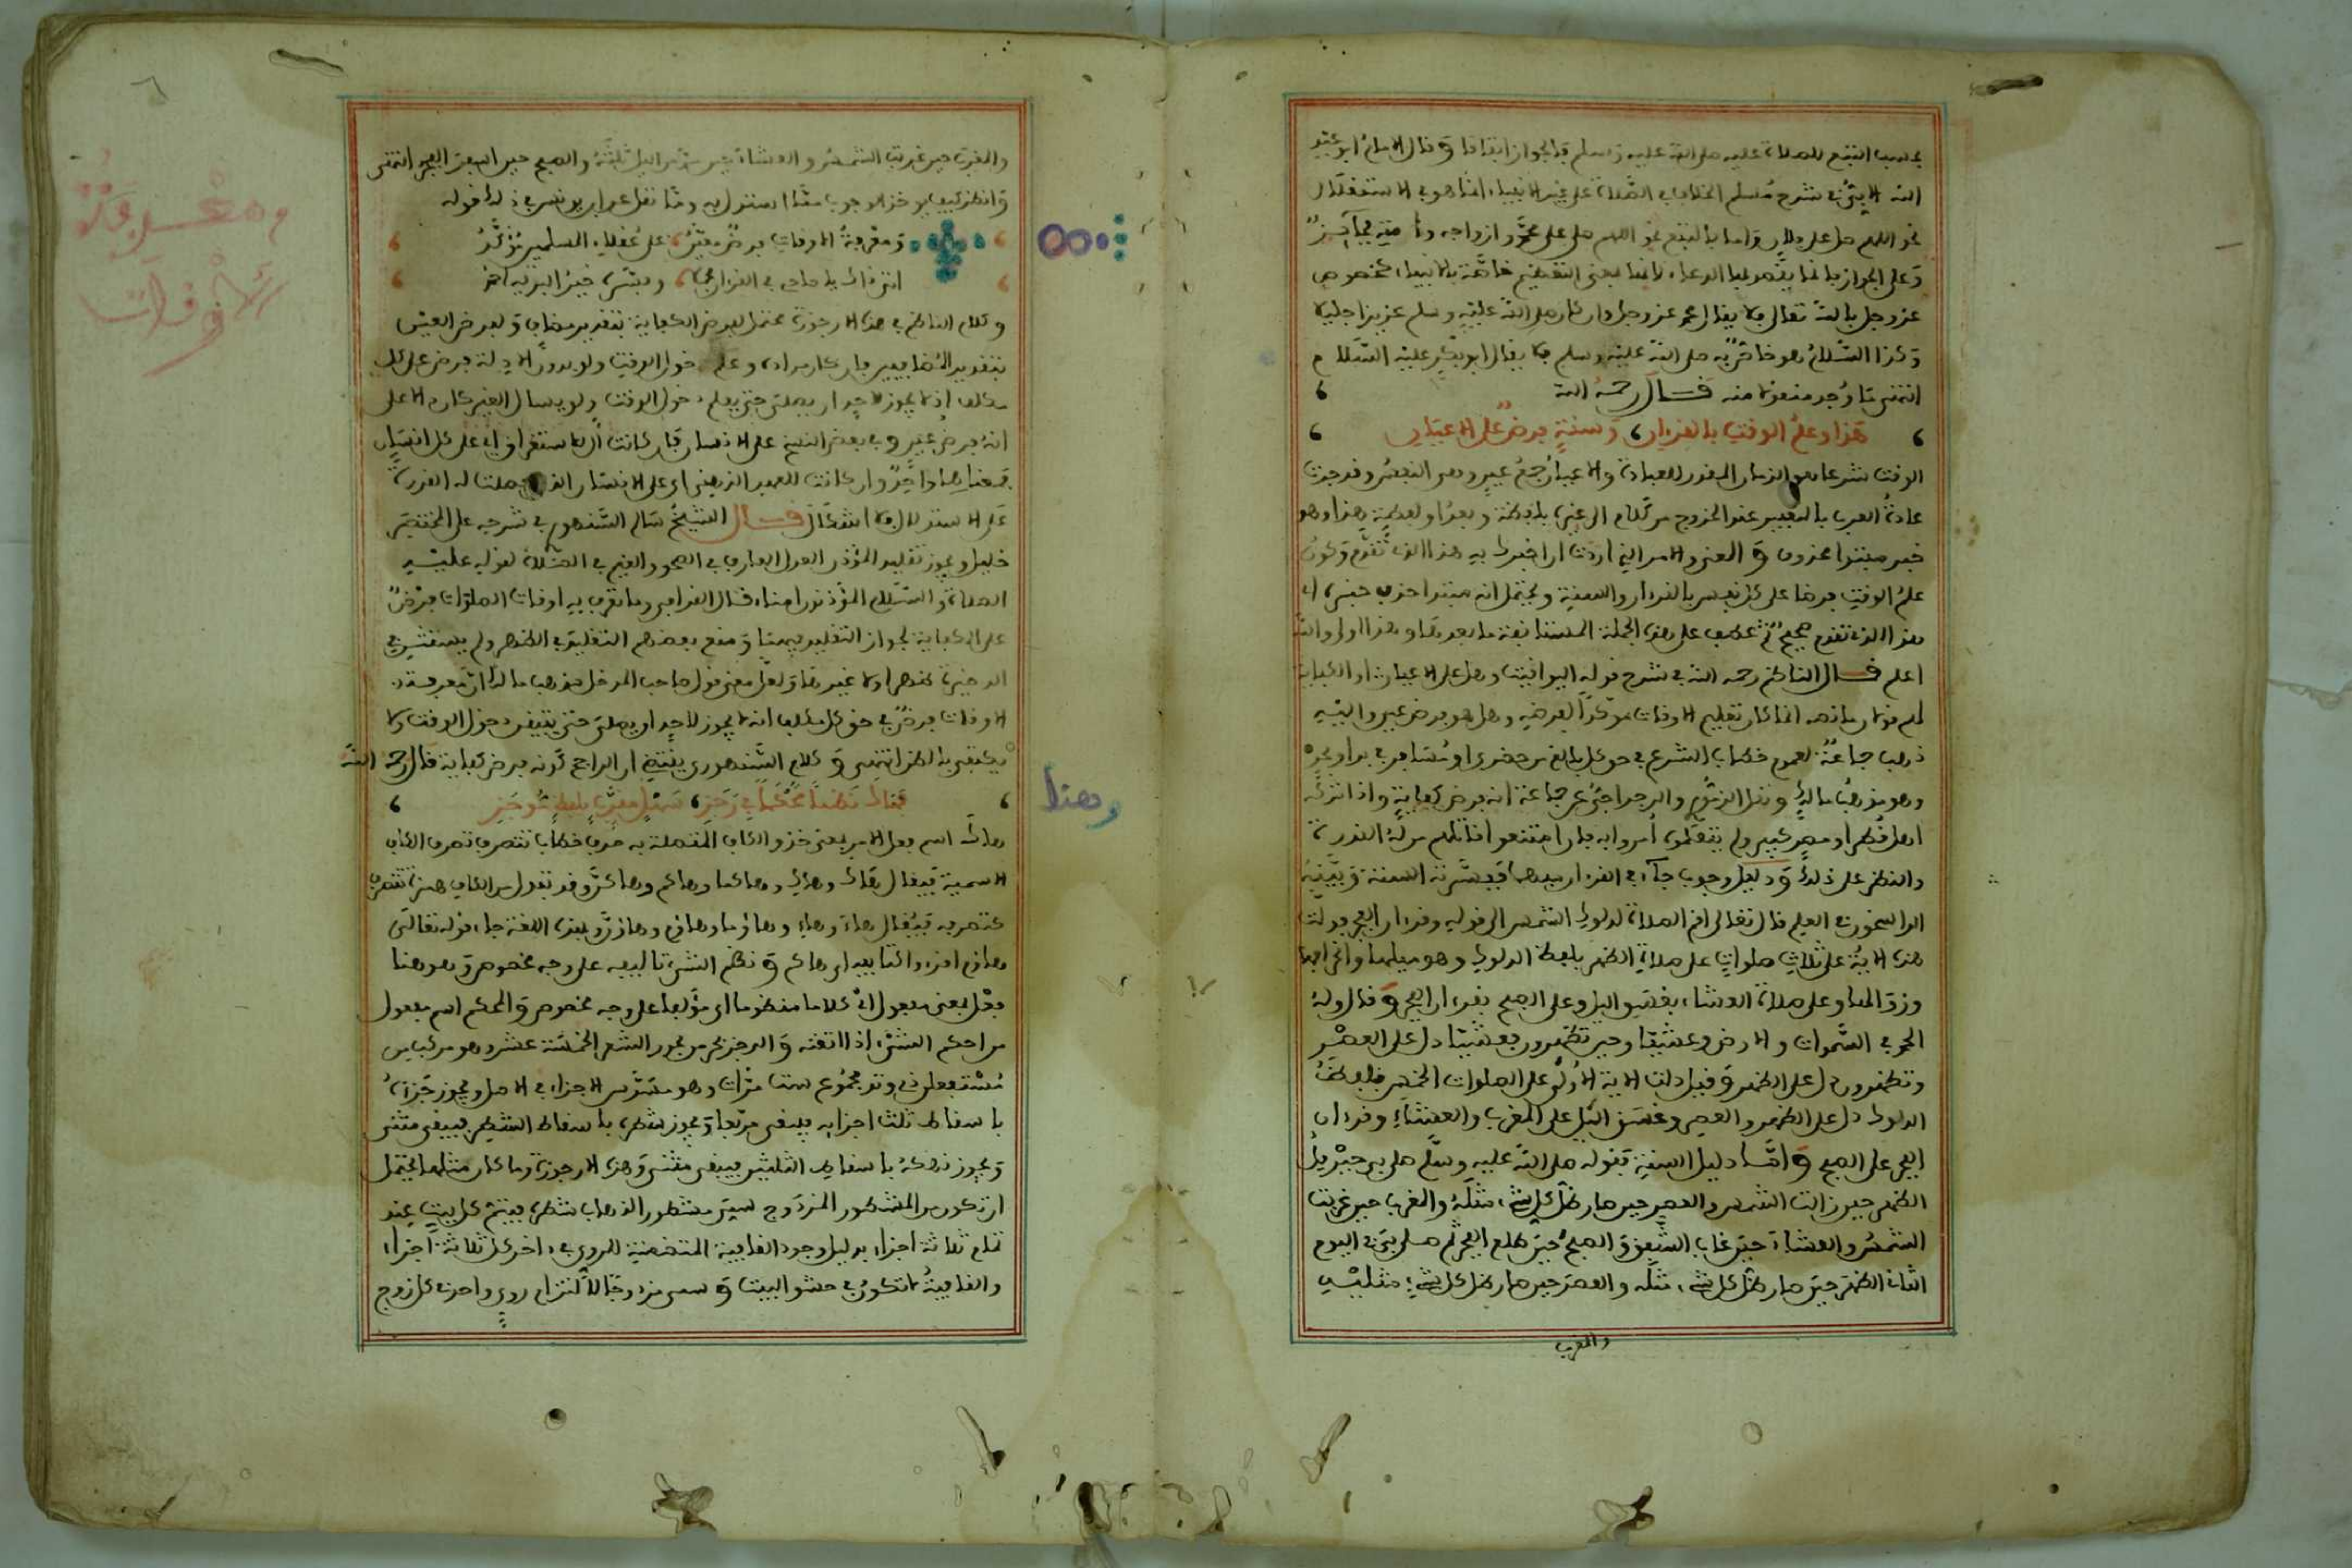 بحسب التبع للصلاة عليه صلى الله عليه وسلم فالجواز اتفاقا وقال الامام ابو عبد
الله الابي في شرح مسلم الخلاف في الصلاة على غير الانبياء انما هو في الاستقلال
نحو اللهم صل على فلان واما بالتبع نحو اللهم صل على محمد وازواجه وذريته فجائز
وعلى الجواز فانما يقصد بها الدعاء لانها بمعنى التعظيم خاصة بالانبياء كخصوص
عز وجل بالله تعالى فلا يقال محمد عز وجل وان كان صلى الله عليه وسلم عزيزا جليلا
وكذا السلام هو خاص به صلى الله عليه وسلم فلا يقال ابو بكر عليه السلام
انتهى ما وجد منقولا منه قال رحمه الله
هذا وعلم الوقت بالقرءان وسنة فرض على الاعيان
الوقت شرعا هو الزمان المقدر للعبادة والاعيان جمع عين وهي النفس وقد جرت
عادة العرب بالتعبير عند الخروج من كلام الى غيره بلفظة وبعد او لفظة هذا وهو
خبر مبتدا محذوف والعذر والامر الذي اردت ان اخبرك به هذا الذي تقدم وكون
علم الوقت فرضا على كل نفس بالقرءان والسنة ويحتمل انه مبتدا حذف خبره اي
هذا الذي تقدم صحيح ثم عطف على هذه الجملة المستانفة ما بعدها وهذا اولى والله
اعلم قال الناظم رحمه الله في شرح قوله اليواقيت وهل على الاعيان او الكفاية
لهم قولان ما نصه انما كان تعليم الاوقات مؤكدا لفرضيه وهل هو فرض عين واليه
ذهب جماعة لعموم خطاب الشرع في حق كل بالغ من حضري او مسافر في بر او بحر
وهو مذهب مالك ونقل البرجراجي عن جماعة انه فرض كفاية واذا تركه
اهل قطر او مصر كبير ولم يتعلموه امروا به فان امتنعوا قاتلهم من له القدرة
والنظر على ذلك ودليل وجوب جاء في القرءان بعدها فبسرته السنة وبينه
الراسخون في العلم قال تعالى اقم الصلاة لدلوك الشمس الى قوله وقرءان الفجر فدلت
هذه الاية على ثلاث صلوات على صلاة الظهر بلفظ الدلوك وهو ميلها وانحرافها
وزوالها وعلى صلاة العشاء بغسق اليل وعلى الصبح بقرءان الفجر وقال وله
الحمد في السموات والارض وعشيا وحين تظهرون فعشيا دل على العصر
وتظهرون دل على الظهر وقيل دلت الاية الاولى على الصلوات الخمس فلفظ
الدلوك دل على الظهر والعصر وغسق اليل على المغرب والعشاء وقرءان
الفجر على الصبح واما دليل السنة فقوله صلى الله عليه وسلم صلى بي جبريل
الظهر حين زالت الشمس والعصر حين صار ظل كل شيء مثله والمغرب حين غربت
الشمس والعشاء حين غاب الشفق والصبح حين طلع الفجر ثم صلى بي في اليوم
الثاني الظهر حين صار ظل كل شيء مثله والعصر حين صار ظل كل شيء مثليه
والمغرب
٦
والمغرب حين غربت الشمس والعشاء حين ذهب من اليل ثلثه والصبح حين اسفر الفجر انتهى
وانظر كيف يوخذ الوجوب مما استدل به ومما نقل عن ابن يونس في ذلك قوله
ومعرفة الاوقات فرض معين على عقلاء المسلمين مؤكد
اتى ذاك يا صاح في القرءان مجملا وبينه خير البرية احمد
وكلام الناظم في هذه الارجوزة محتمل لفرض الكفاية بتقدير مضاف ولفرض العين
بتقدير المضافين فان كان مراده وعلم دخول الوقت ولو بدون الادلة فرض على كل
مكلف اذ لا يجوز لاحد ان يصلي حتى يعلم دخول الوقت ولو بسؤال الغير كان دالا على
انه فرض عين وفي بعض النسخ على الانسان فان كانت ال للاستغراق اي على كل انسان
فمعناهما واحد وان كانت للعهد الذهني اي على الانسان الذي حصلت له القدرة
على الاستدلال فلا اشكال قال الشيخ سالم السنهوري في شرحه على المختصر
خليل ويجوز تقليد المؤذن العدل العارف في الصحو والغيم في الصلاة لقوله عليه
الصلاة والسلام المؤذنون امناء قال القرافي وما تعرف به اوقات الصلوات فرض
على الكفاية لجواز التقليد فيها ومنع بعضهم التقليد في الظهر ولم يستثن في
الذخيرة ظهرا ولا غيرها ولعل معنى قول صاحب المدخل مذهب مالك ان معرفة
الاوقات فرض في حق كل مكلف انه لا يجوز لاحد ان يصلي حتى يتيقن دخول الوقت ولا
يكتفي بالظن انتهى وكلام السنهوري يقتضي ان الراجح كونه فرض كفاية قال رحمه الله
فهاك نظما محكما في رجز سهل مقرب بلفظ موجز
هاك اسم فعل الامر بمعنى خذ والكاف المتصلة به حرف خطاب تتصرف تصرف الكاف
الاسمية فيقال هاك وهاك وهاكما وهاكم وهاكن وقد تبدل من الكاف همزة تتصرف
كتصرفه فيقال هاء وهاء وهاؤما وهاؤم وهاؤن وبهذه اللغة جاء قوله تعالى
هاؤم اقرءوا كتابيه اي هاكم ونظم الشيء تاليفه على وجه مخصوص وهو هنا
فعل بمعنى مفعول اي كلاما منظوما اي مؤلفا على وجه مخصوص والمحكم اسم مفعول
من احكم الشيء اذا اتقنه والرجز بحر من بحور الشعر الخمسة عشر وهو مركب من
مستفعلن ذي وتد مجموع ست مرات وهو مسدس الاجزاء في الاصل ويجوز جزءه
باسقاط ثلث اجزايه فيبقى مربعا ويجوز شطره باسقاط الشطر فيبقى مثلث
ويجوز نهكه باسقاط الثلثين فيبقى مثنى وهذه الارجوزة وما كان مثلها يحتمل
ان تكون من المشطور المزدوج سمي مشطور الذهاب شطره فيتم كل بيت عند
تمام ثلاثة اجزاء بدليل وجود القافية المتضمنة للروي في ءاخر كل ثلاثة اجزاء
والقافية لا تكون في حشو البيت وسمي مزدوجا لالتزام روي واحد في كل زوج
ومعرفة
الاوقات
وهذا